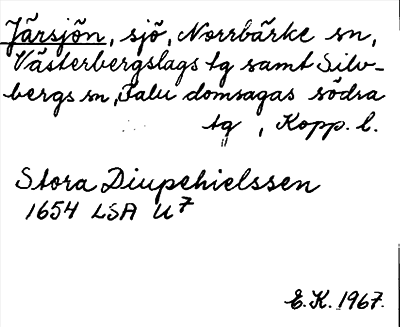 Järsjön, sjö, Norrbärke sn,
Västerbergslags tg samt Silv-
bergs sn, Falu domsagas södra
tg , Kopp. l.
Stora Diupehielssen
1654 LSA U7
E.K. 1967.